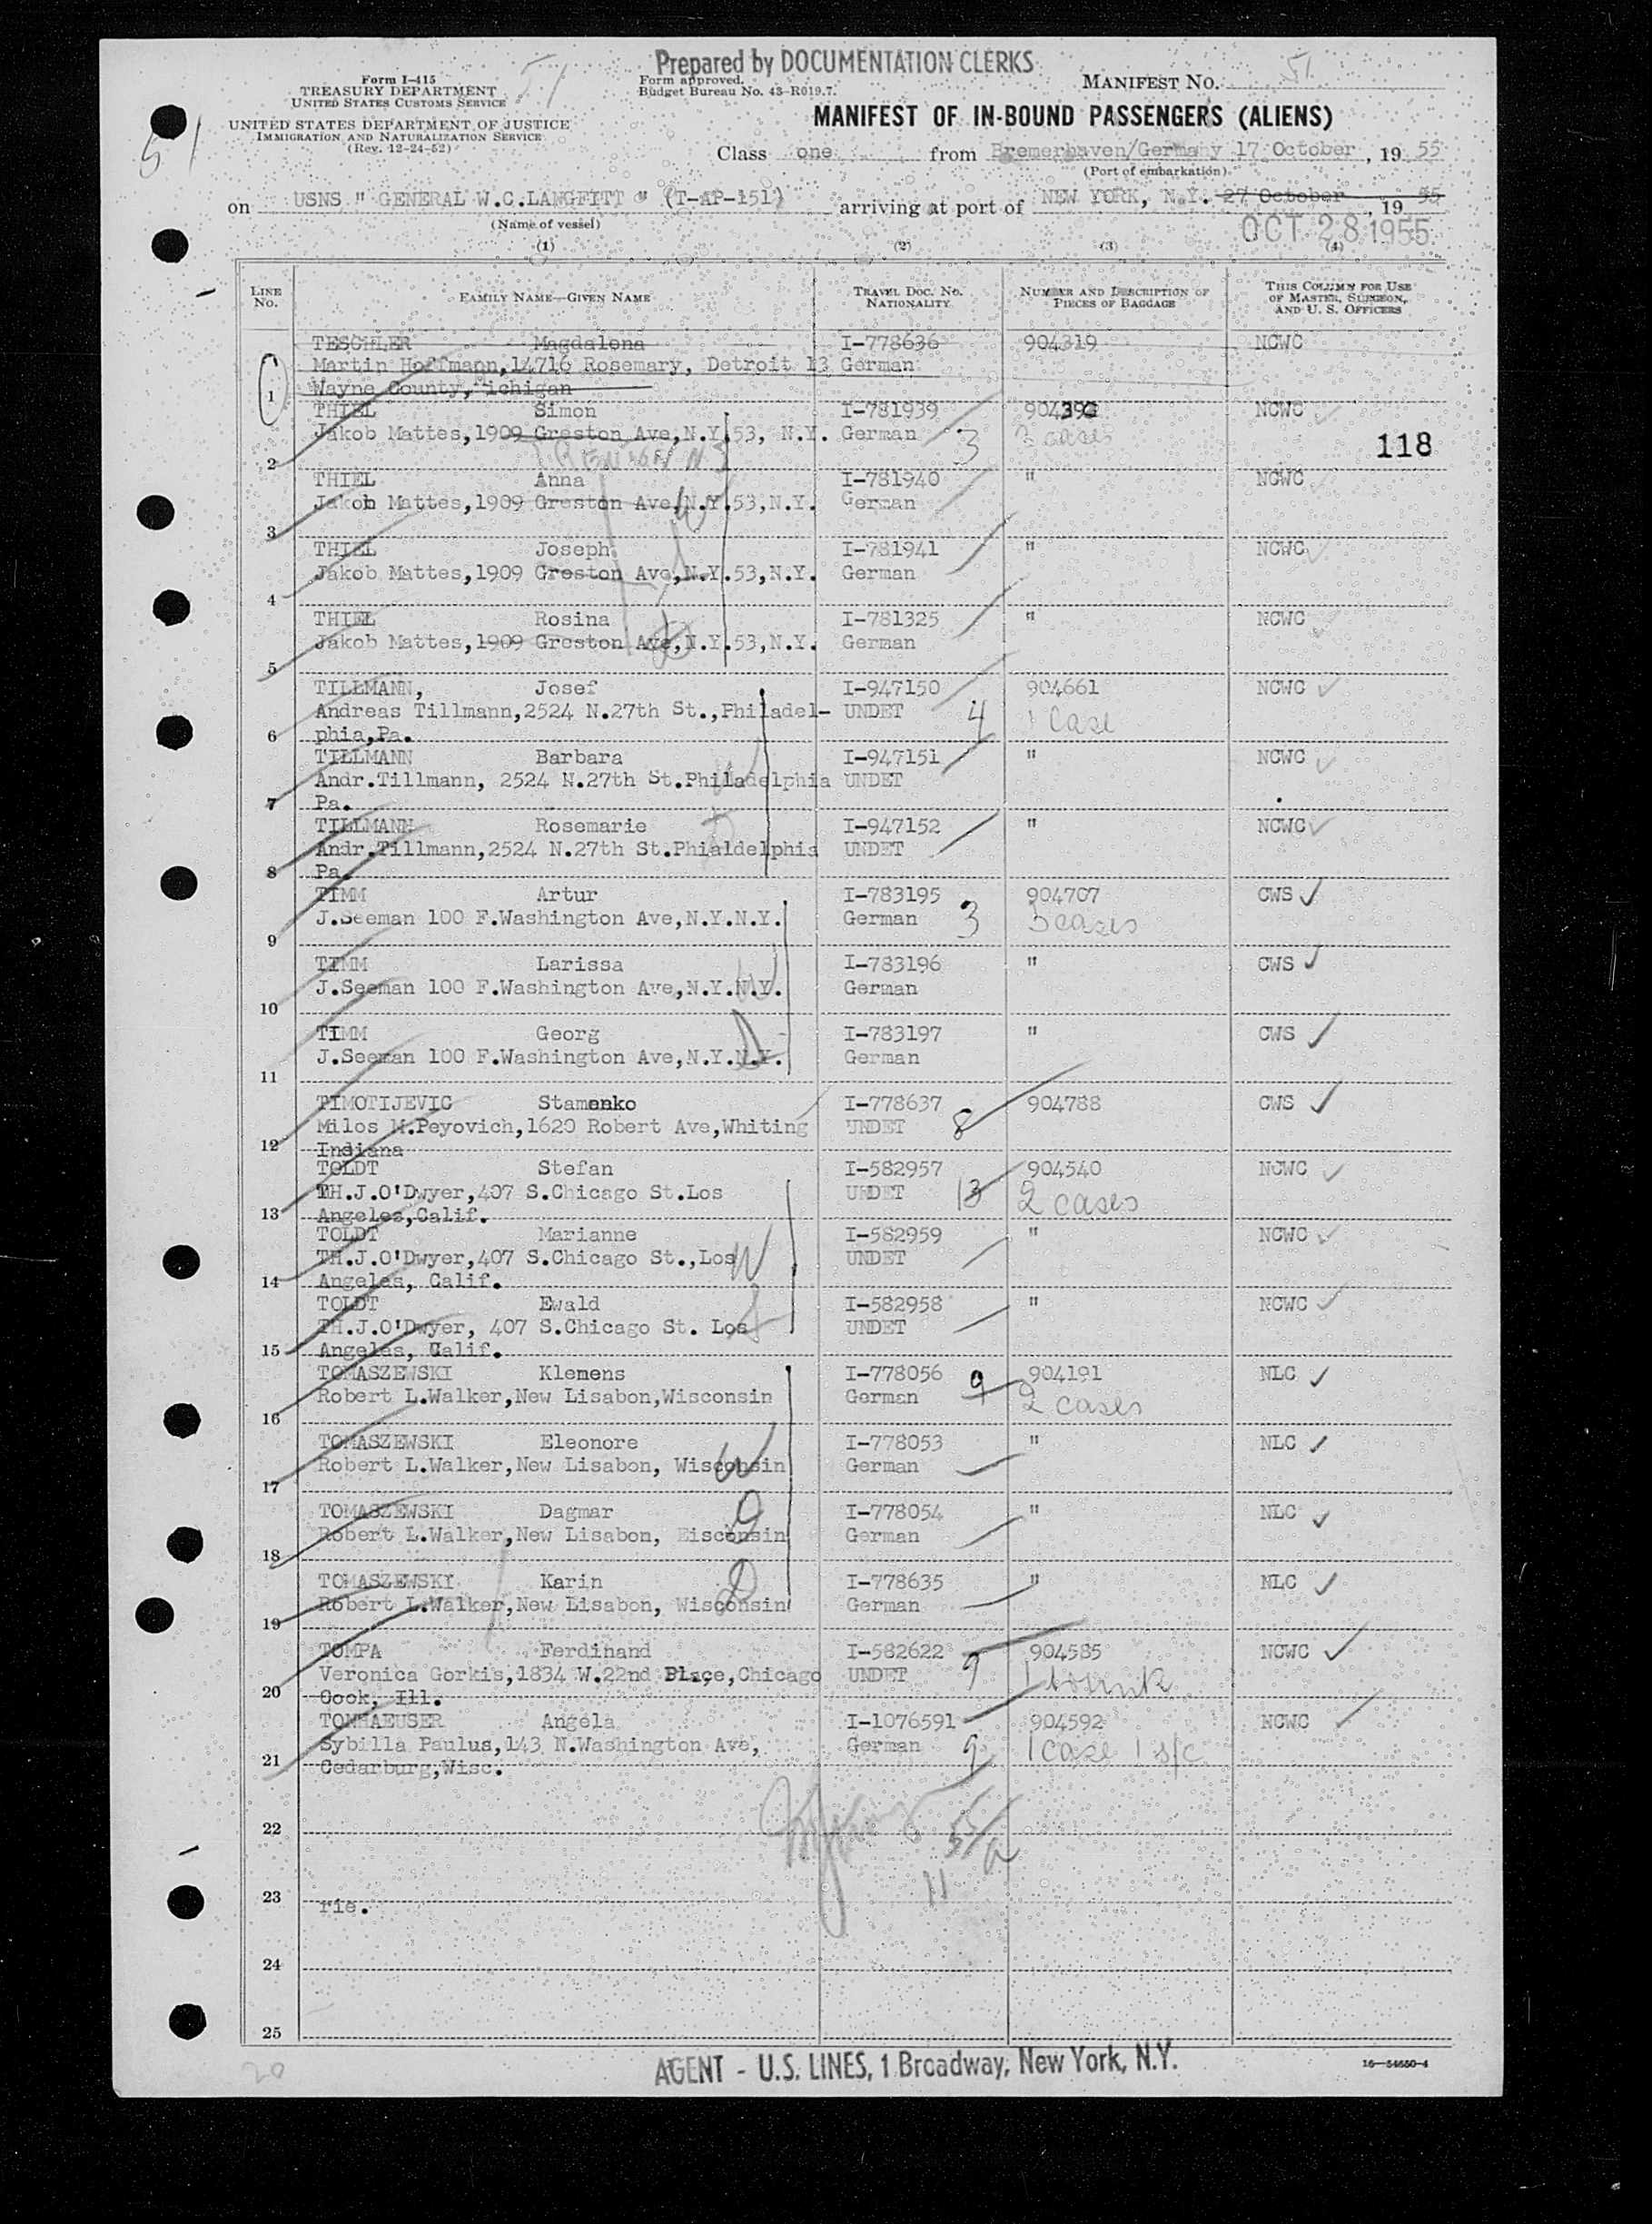 Prepared by DOCUMENTATION CLERKS
Form I-415
TREASURY DEPARTMENT
UNITED STATES CUSTOMS SERVICE
51
Form approved.
Budget Bureau No. 43-R019.7.
MANIFEST NO. 51
UNITED STATES DEPARTMENT OF JUSTICE
IMMIGRATION AND NATURALIZATION SERVICE
(Rev. 12-24-52)
51
MANIFEST OF IN-BOUND PASSENGERS (ALIENS)
Class one from Bremerhaven/Germany 17 October, 19 55
(Port of embarkation)
on USNS " GENERAL W.C.LANGFITT " (T-AP-151) arriving at port of NEW YORK, N.Y. 27 October, 19 55
(Name of vessel)
OCT 28 1955
(1) (2) (3) (4)
LINE NO. FAMILY NAME—GIVEN NAME TRAVEL DOC. NO. NATIONALITY NUMBER AND DESCRIPTION OF PIECES OF BAGGAGE THIS COLUMN FOR USE OF MASTER, SURGEON, AND U. S. OFFICERS
TESCHLER Magdalena I-778636 904319 NCWC
Martin Hoffmann,14716 Rosemary, Detroit 13 German
1 Wayne County, Michigan
THIEL Simon I-781939 NCWC
Jakob Mattes,1909 Greston Ave,N.Y.53, N.Y. German 3 3 cases
118
2
THIEL Anna I-781940 " NCWC
Jakob Mattes,1909 Greston Ave,N.Y.53,N.Y. German
3
THIEL Joseph I-781941 " NCWC
Jakob Mattes,1909 Greston Ave,N.Y.53,N.Y. German
4
THIEL Rosina I-781325 " NCWC
Jakob Mattes,1909 Greston Ave,N.Y.53,N.Y. German
5
TILLMANN, Josef I-947150 904661 NCWC
Andreas Tillmann,2524 N.27th St.,Philadel- UNDET 4 1 Case
6 phia,Pa.
TILLMANN Barbara I-947151 " NCWC
Andr.Tillmann, 2524 N.27th St.Philadelphia UNDET
7 Pa.
TILLMANN Rosemarie I-947152 " NCWC
Andr.Tillmann,2524 N.27th St.Phialdelphia UNDET
8 Pa.
TIMM Artur I-783195 904707 CWS
J.Seeman 100 F.Washington Ave,N.Y.N.Y. German 3 3 cases
9
TIMM Larissa I-783196 " CWS
J.Seeman 100 F.Washington Ave,N.Y.N.Y. German
10
TIMM Georg I-783197 " CWS
J.Seeman 100 F.Washington Ave,N.Y.N.Y. German
11
TIMOTIJEVIC Stamenko I-778637 904788 CWS
Milos M.Peyovich,1620 Robert Ave,Whiting UNDET 8
12 Indiana
TOLDT Stefan I-582957 904540 NCWC
TH.J.O'Dwyer,407 S.Chicago St.Los UNDET 13 2 cases
13 Angeles,Calif.
TOLDT Marianne I-582959 " NCWC
TH.J.O'Dwyer,407 S.Chicago St.,Los UNDET
14 Angeles, Calif.
TOLDT Ewald I-582958 " NCWC
TH.J.O'Dwyer, 407 S.Chicago St. Los UNDET
15 Angeles, Calif.
TOMASZEWSKI Klemens I-778056 904191 NLC
Robert L.Walker,New Lisabon,Wisconsin German 9 2 cases
16
TOMASZEWSKI Eleonore I-778053 " NLC
Robert L.Walker,New Lisabon, Wisconsin German
17
TOMASZEWSKI Dagmar I-778054 " NLC
Robert L.Walker,New Lisabon, Eisconsin German
18
TOMASZEWSKI Karin I-778635 " NLC
Robert L.Walker,New Lisabon, Wisconsin German
19
TOMPA Ferdinand I-582622 904585 NCWC
Veronica Gorkis,1834 W.22nd Place,Chicago UNDET 9 1 trunk
20 Cook, Ill.
TONHAEUSER Angela I-1076591 904592 NCWC
Sybilla Paulus,143 N.Washington Ave, German 9 1 case 1 s/c
21 Cedarburg,Wisc.
22
23 rie.
11
24
25
20
AGENT - U.S. LINES, 1 Broadway, New York, N.Y.
16—54650-4